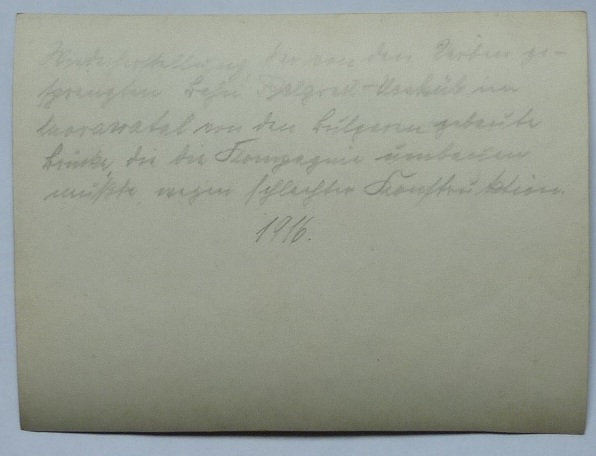 Wiederherstellung der von den Serben ge-
sprengten Bahn Belgrad-Uesküb im
Morawatal von den Bulgaren gebaute
Brücke, die die Kompagnie umbauen
mußte wegen schlechter Konstruktion.
1916.